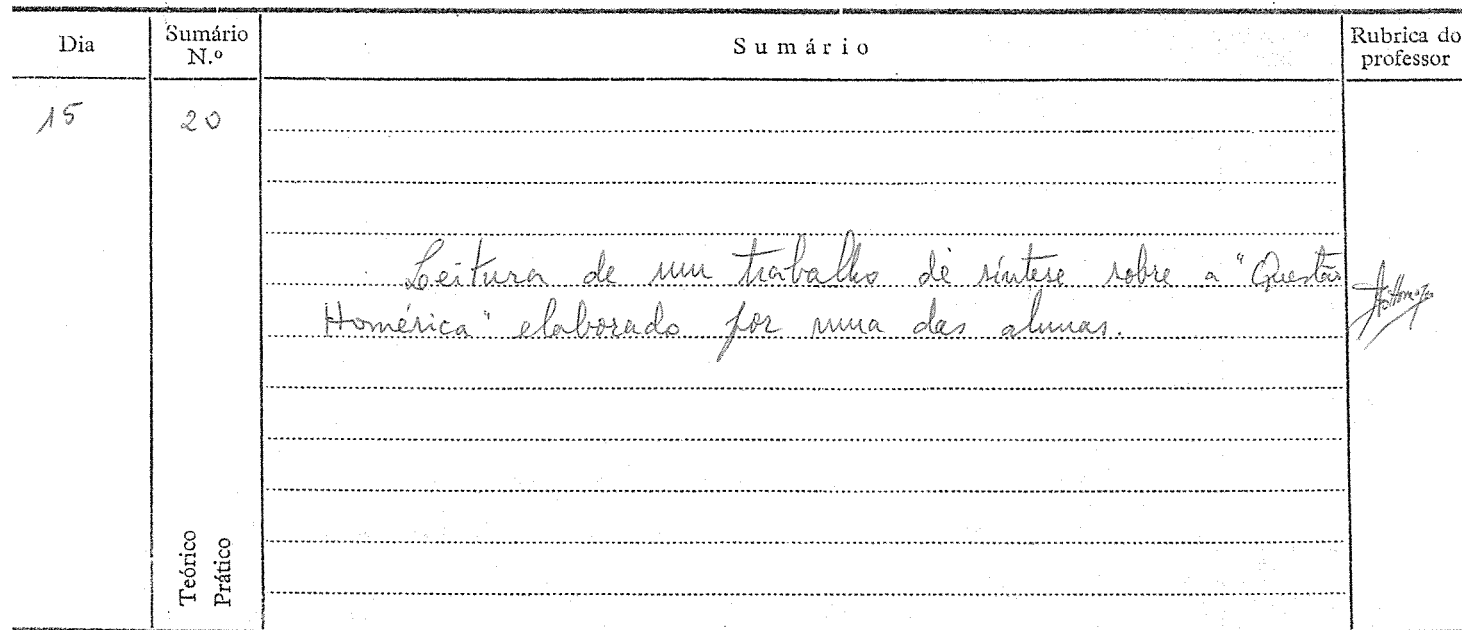 Dia
Sumário
N.º
Sumário
Rubrica do
professor
15
20
Leitura de um trabalho de síntese sobre a "Questão
Homérica" elaborado por uma das alunas.
Teórico
Prático